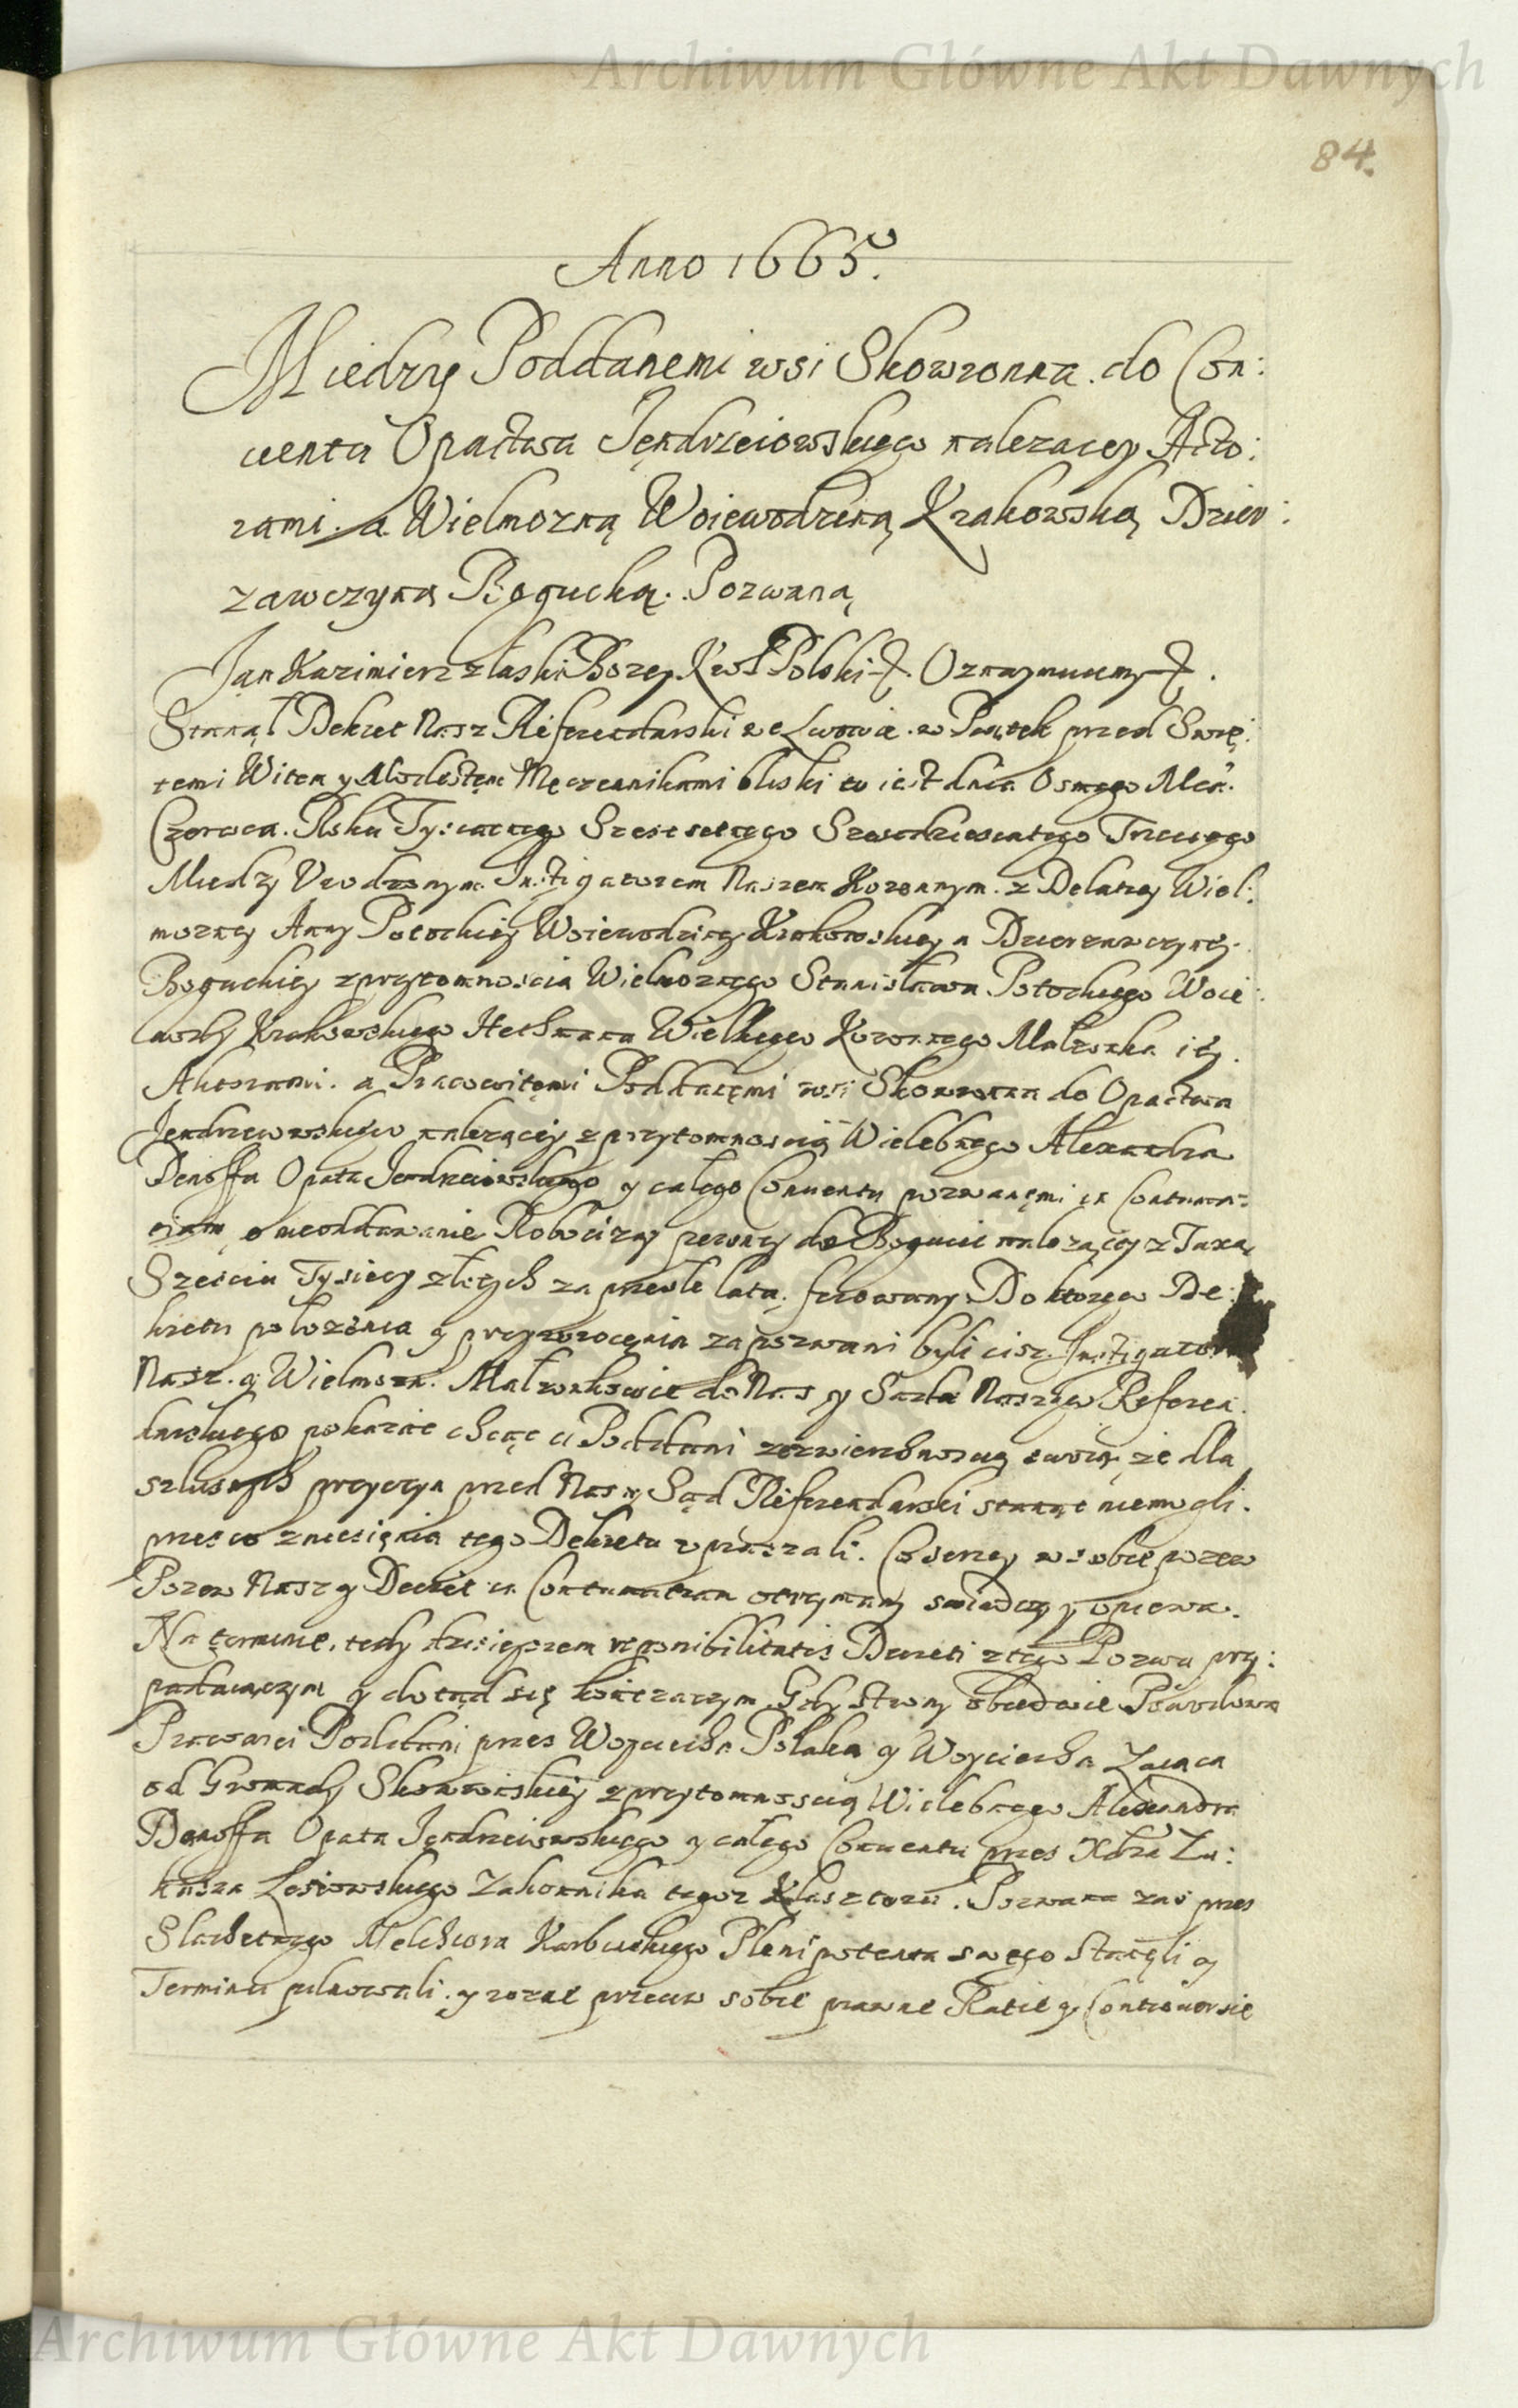 Archiwum Główne Akt Dawnych
84.
Anno 1665.
Miedzy Poddanemi wsi Skowronna. do Con:
uentu Opactwa Jędrzeiowskiego nalezacey Acto:
rami. a Wielmozną Woiewodziną Krakowską Dzier:
zawczyną Bogucką. Pozwaną
Jan Kazimierz z łaski Bozey Krol Polski Oznaymuiemy
Stanął Dekret Nasz Referendarski we Lwowie. w Piątek przed Swię:
temi Witem y Modestem Męczennikami bliski to iest dnia Osmego Mca.
Czerwca. Roku Tysiącnego Szescsetnego Szescdziesiatego Trzeciego
Miedzy Urodzonym Instigatorem Naszem Koronnym. z Delatiey Wiel:
mozney Anny Potockiey Woiewodziney Krakowskiey a Dzierzawczyney.
Boguckiey z przytomnoscia Wielmoznego Stanisława Potockiego Woie:
wody Krakowskiego Hethmana Wielkiego Koronnego Małzonka iey.
Aktorami. a Pracowitemi Poddanemi wsi Skowronna do Opactwa
Jendrzeiowskiego nalezącey z przytomnoscią Wielebnego Alexandra
Denoffa Opata Jendrzeiowskiego y całego Conuentu pozwanęmi in Contuma:
ciam, o nieoddawanie Robocizny pewney do Bogucic nalezącey z Taxą
Szesciu Tysięcy złotych za przeszłe lata. ferowany. Do ktorego De:
kretu połozenia y przywrocenia zapozwani byli cisz. Instigator
Nasz. y Wielmozn. Małzonkowie do Nas y Sadu Naszego Referen:
darskiego pokazać chcąc ci Poddani zezwierzchnoscią swoią, ze dla
słusznych przyczyn przed Nasz Sąd Referendarski stanąć niemogli.
przeto zniesienia tego Dekretu upraszali. Co szerzey w sobie pozew
Pozew Nasz y Decret in Contumatiam otrzymany swiadczy y opiewa.
Na terminie, tedy dzisieyszem reponibilitatis Decreti z tego Pozwu przy:
padaiączym y dotąd się toczaczym Gdy strony obiedwie Powodowa
Pracowici Poddani przez Woyciecha Polaka y Woyciecha Zaiąca
od Gromady Skowronskiey z przytomnoscią Wielebnego Alexandra
Denoffa Opata Jędrzeiowskiego y całego Conuentu przez Xdza Łu:
kasza Zakonnika tegoz Klasztoru. Pozwana zas przez
Sławetnego Melchiora Plenipotenta swego Stanęli y
Terminu pilnowali. y rozne przeciw sobie prawne Ratie y Controuersie
Archiwum Główne Akt Dawnych